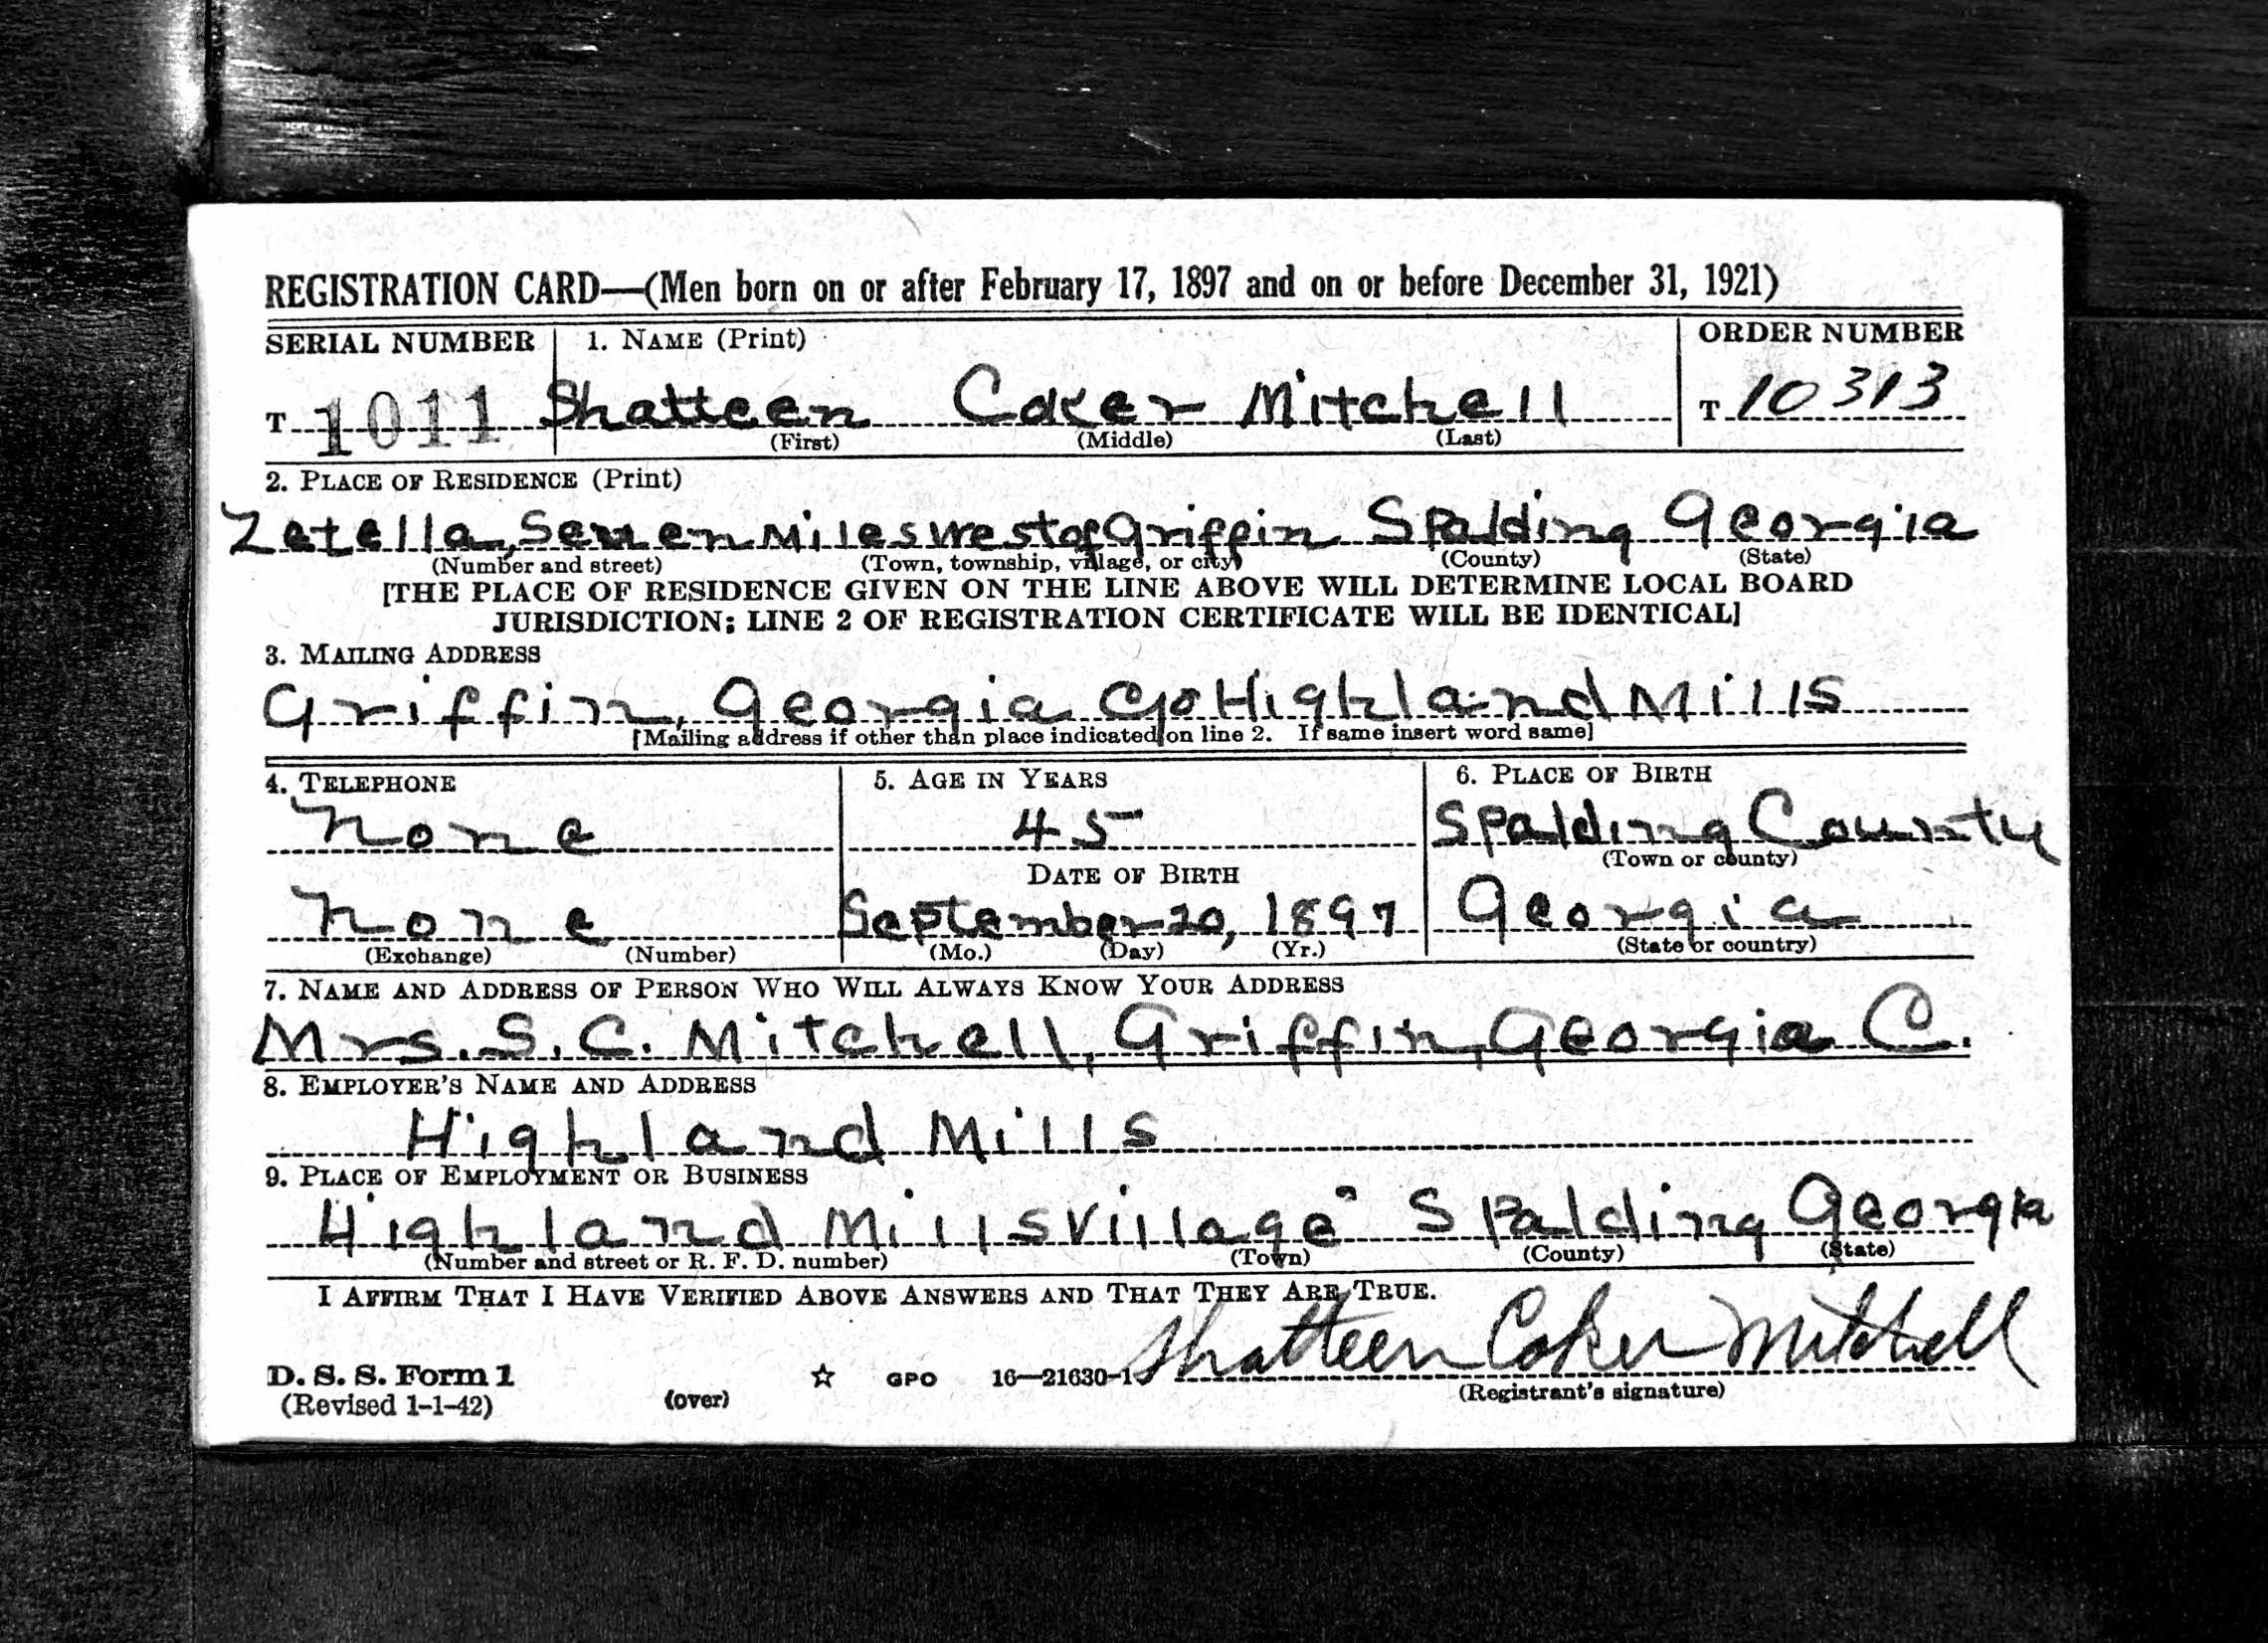 REGISTRATION CARD—(Men born on or after February 17, 1897 and on or before December 31, 1921)
SERIAL NUMBER 1. NAME (Print) ORDER NUMBER
T 1011 Shatteen Coker Mitchell T 10313
(First) (Middle) (Last)
2. PLACE OF RESIDENCE (Print)
Zetella, Seven Miles West of Griffin Spalding Georgia
(Number and street) (Town, township, village, or city) (County) (State)
[THE PLACE OF RESIDENCE GIVEN ON THE LINE ABOVE WILL DETERMINE LOCAL BOARD
JURISDICTION; LINE 2 OF REGISTRATION CERTIFICATE WILL BE IDENTICAL]
3. MAILING ADDRESS
Griffin, Georgia c/o Highland Mills
[Mailing address if other than place indicated on line 2. If same insert word same]
4. TELEPHONE 5. AGE IN YEARS 6. PLACE OF BIRTH
None 45 Spalding County
(Town or county)
DATE OF BIRTH
None September 20, 1897 Georgia
(Exchange) (Number) (Mo.) (Day) (Yr.) (State or country)
7. NAME AND ADDRESS OF PERSON WHO WILL ALWAYS KNOW YOUR ADDRESS
Mrs. S. C. Mitchell, Griffin, Georgia C.
8. EMPLOYER'S NAME AND ADDRESS
Highland Mills
9. PLACE OF EMPLOYMENT OR BUSINESS
Highland Mills Village" Spalding Georgia
(Number and street or R. F. D. number) (Town) (County) (State)
I AFFIRM THAT I HAVE VERIFIED ABOVE ANSWERS AND THAT THEY ARE TRUE.
Shatteen Coker Mitchell
D. S. S. Form 1 ☆ GPO 16—21630-1
(Revised 1-1-42) (over) (Registrant's signature)